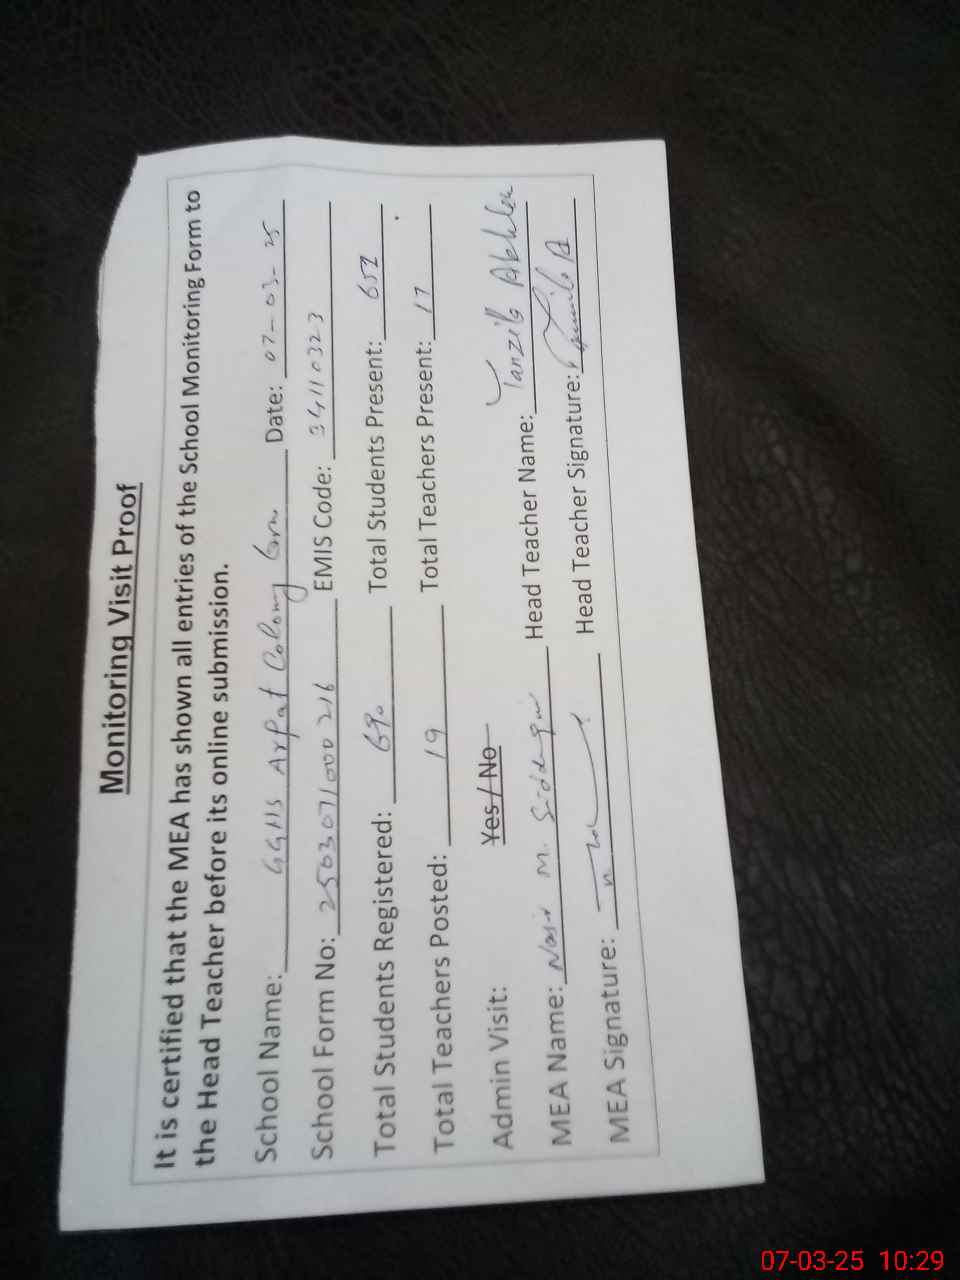 Monitoring Visit Proof
It is certified that the MEA has shown all entries of the School Monitoring Form to
the Head Teacher before its online submission.
School Name: GGHS Arfat Colony Grw Date: 07-03-25
School Form No: 2503071000216 EMIS Code: 34110323
Total Students Registered: 690 Total Students Present: 652
Total Teachers Posted: 19 Total Teachers Present: 17
Admin Visit: Yes / No
MEA Name: Nasir M. Siddiqui Head Teacher Name: Tanzila Akhlaq
MEA Signature: Head Teacher Signature: Tanzila A
07-03-25 10:29